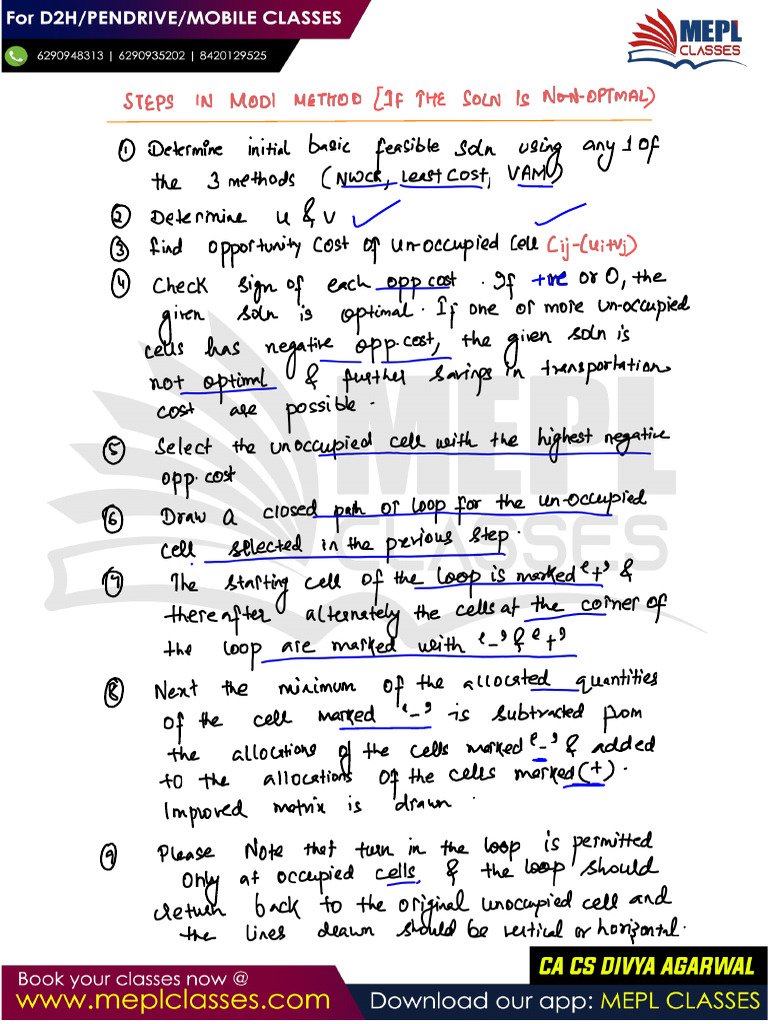 For D2H/PENDRIVE/MOBILE CLASSES
6290948313 | 6290935202 | 8420129525
MEPL
CLASSES
STEPS IN MODI METHOD [IF THE SOLN IS NON-OPTMAL)
① Determine initial basic feasible soln using any 1 of
the 3 methods (NWCR, Least Cost, VAM)
② Determine u & v
③ Find opportunity cost of un-occupied cell Cij-(ui+vj)
④ Check sign of each opp cost. If +ve or 0, the
given soln is optimal. If one or more un-occupied
cells has negative opp.cost, the given soln is
not optimal & further savings in transportation
cost are possible.
⑤ Select the unoccupied cell with the highest negative
opp.cost
⑥ Draw a closed path or loop for the un-occupied
cell selected in the previous step.
⑦ The starting cell of the loop is marked '+' &
thereafter alternately the cells at the corner of
the loop are marked with '-' & '+'
⑧ Next the minimum of the allocated quantities
of the cell marked '-' is subtracted from
the allocations of the cells marked '-' & added
to the allocations of the cells marked (+).
Improved matrix is drawn.
⑨ Please Note that turn in the loop is permitted
only at occupied cells & the loop should
return back to the original unocupied cell and
the lines drawn should be vertical or horizontal.
MEPL
CLASSES
CA CS DIVYA AGARWAL
Book your classes now @
www.meplclasses.com
Download our app: MEPL CLASSES